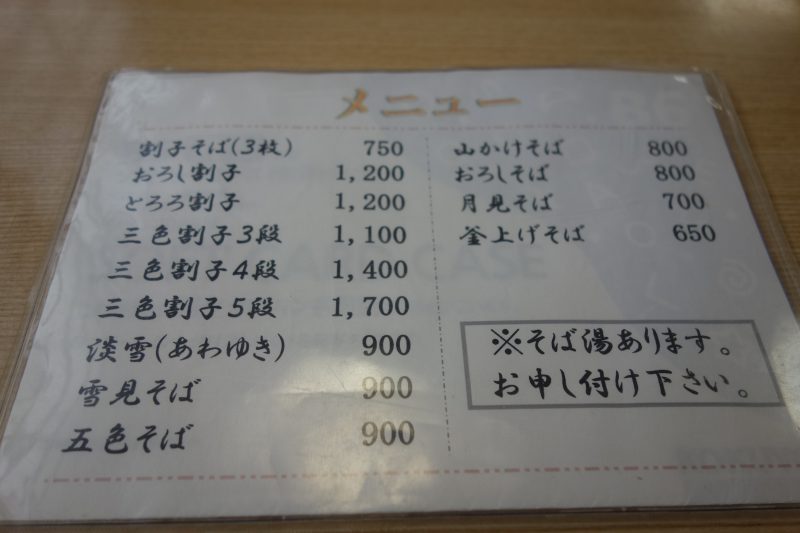 メニュー
割子そば(3枚) 750
おろし割子 1,200
とろろ割子 1,200
三色割子3段 1,100
三色割子4段 1,400
三色割子5段 1,700
淡雪(あわゆき) 900
雪見そば 900
五色そば 900
山かけそば 800
おろしそば 800
月見そば 700
釜上げそば 650
※そば湯あります。
お申し付け下さい。